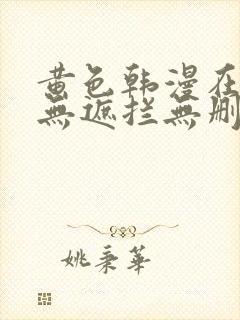 黄色韩漫在
無遮拦無删
姚秉華